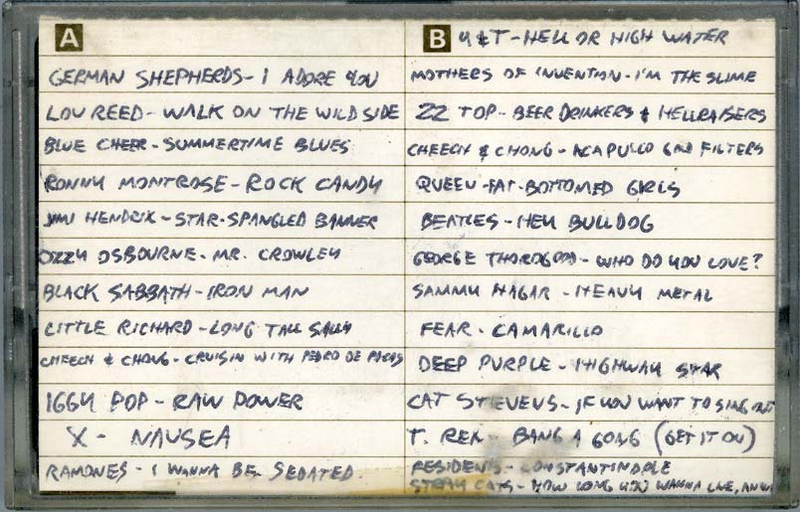 A
GERMAN SHEPHERDS - I ADORE YOU
LOU REED - WALK ON THE WILD SIDE
BLUE CHEER - SUMMERTIME BLUES
RONNY MONTROSE - ROCK CANDY
JIMI HENDRIX - STAR-SPANGLED BANNER
OZZY OSBOURNE - MR. CROWLEY
BLACK SABBATH - IRON MAN
LITTLE RICHARD - LONG TALL SALLY
CHEECH & CHONG - CRUISIN WITH PEDRO DE PACAS
IGGY POP - RAW POWER
X - NAUSEA
RAMONES - I WANNA BE SEDATED
B Y&T - HELL OR HIGH WATER
MOTHERS OF INVENTION - I'M THE SLIME
ZZ TOP - BEER DRINKERS & HELLRAISERS
CHEECH & CHONG - ACAPULCO GOLD FILTERS
QUEEN - FAT-BOTTOMED GIRLS
BEATLES - HEY BULLDOG
GEORGE THOROGOOD - WHO DO YOU LOVE?
SAMMY HAGAR - HEAVY METAL
FEAR - CAMARILLO
DEEP PURPLE - HIGHWAY STAR
CAT STEVENS - IF YOU WANT TO SING OUT
T. REX - BANG A GONG (GET IT ON)
RESIDENTS - CONSTANTINOPLE
STRAY CATS - HOW LONG YOU WANNA LIVE,